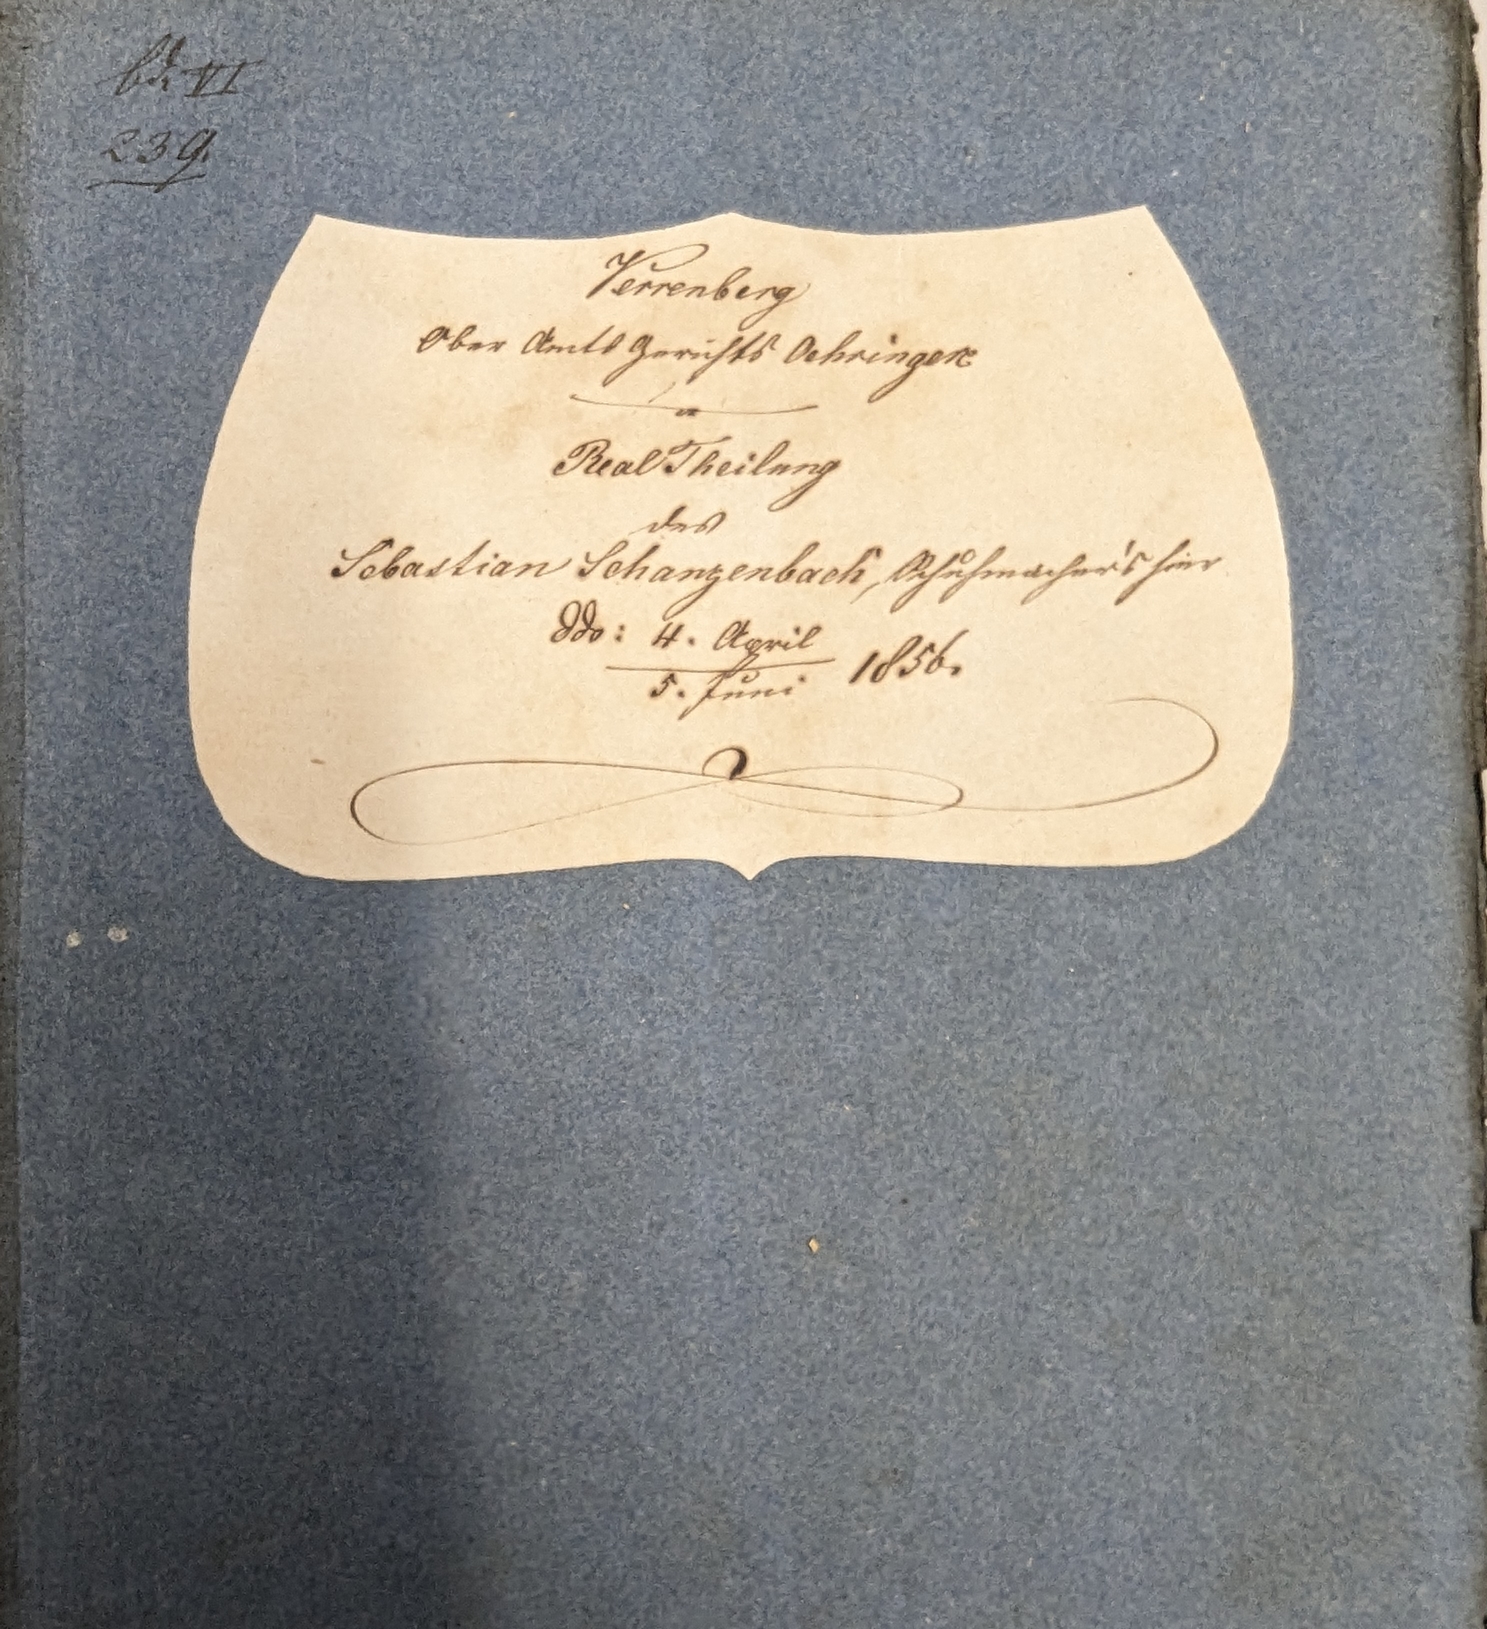 bd. VI
239.
Verrenberg
Ober Amts Gerichts Oehringen
Real Theilung
des
Sebastian Schanzenbach, Schuhmacher's hier
ddo: 4. April
5. Juni 1856.